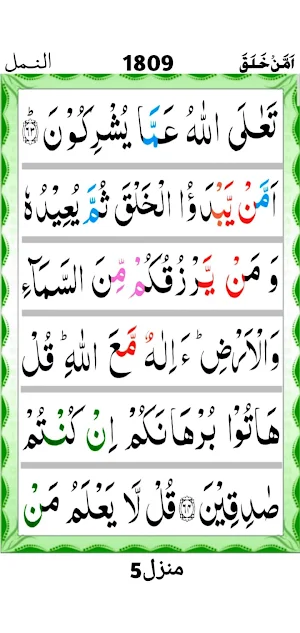 اَمَّنْ خَلَقَ 1809 النمل
تَعٰلَى اللّٰهُ عَمَّا يُشْرِكُوْنَ ۝٦٣ؕ
اَمَّنْ يَّبْدَؤُا الْخَلْقَ ثُمَّ يُعِيْدُهٗ
وَ مَنْ يَّرْزُقُكُمْ مِّنَ السَّمَآءِ
وَالْاَرْضِ ؕ ءَاِلٰهٌ مَّعَ اللّٰهِ ؕ قُلْ
هَاتُوْا بُرْهَانَكُمْ اِنْ كُنْتُمْ
صٰدِقِيْنَ ۝٦٤ قُلْ لَّا يَعْلَمُ مَنْ
منزل5